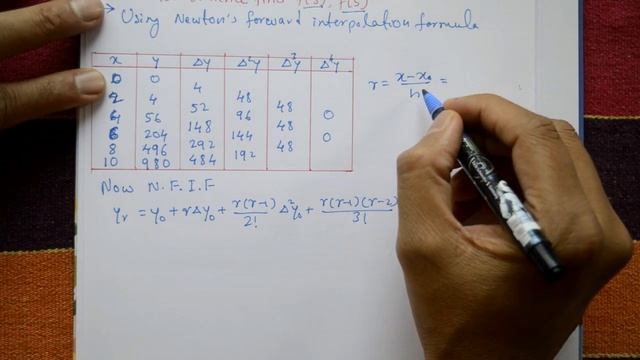 find f(3), f(5)
→ Using Newton's forward interpolation formula
x y Δy Δ²y Δ³y Δ⁴y
0 0
4
2 4 48
52 48
4 56 96 0
148 48
6 204 144 0
292 48
8 496 192
484
10 980
r = x-x₀/h =
Now N.F.I.F
yᵣ = y₀ + rΔy₀ + r(r-1)/2! Δ²y₀ + r(r-1)(r-2)/3!